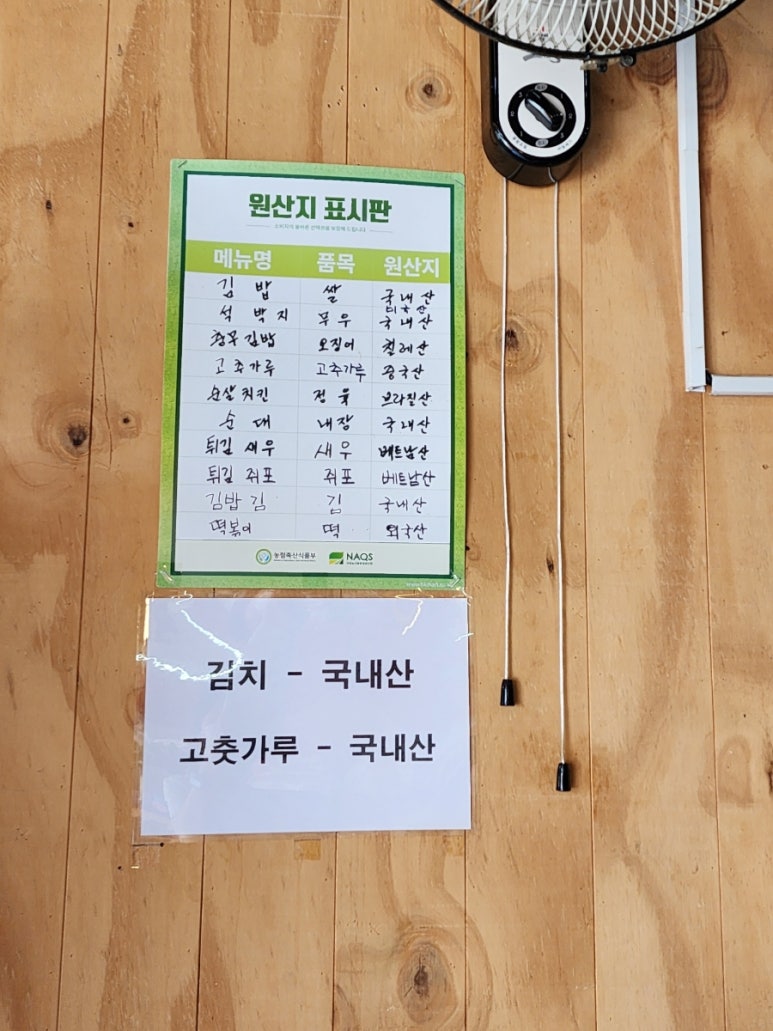 원산지 표시판
소비자의 올바른 선택권을 보장해 드립니다
메뉴명 품목 원산지
김밥 쌀 국내산
석박지 무우 국내산
충무김밥 오징어 칠레산
고추가루 고추가루 중국산
순살치킨 정육 브라질산
순대 내장 국내산
튀김 새우 새우 베트남산
튀김 쥐포 쥐포 베트남산
김밥 김 김 국내산
떡볶이 떡 외국산
농림축산식품부 NAQS
김치 - 국내산
고춧가루 - 국내산